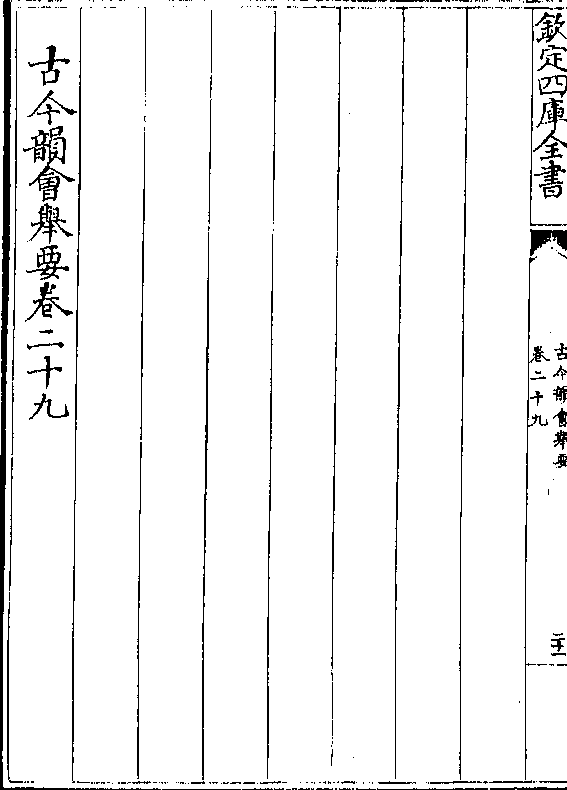 欽定四庫全書
古今韻會舉要
卷二十九
二十一
古今韻會舉要卷二十九